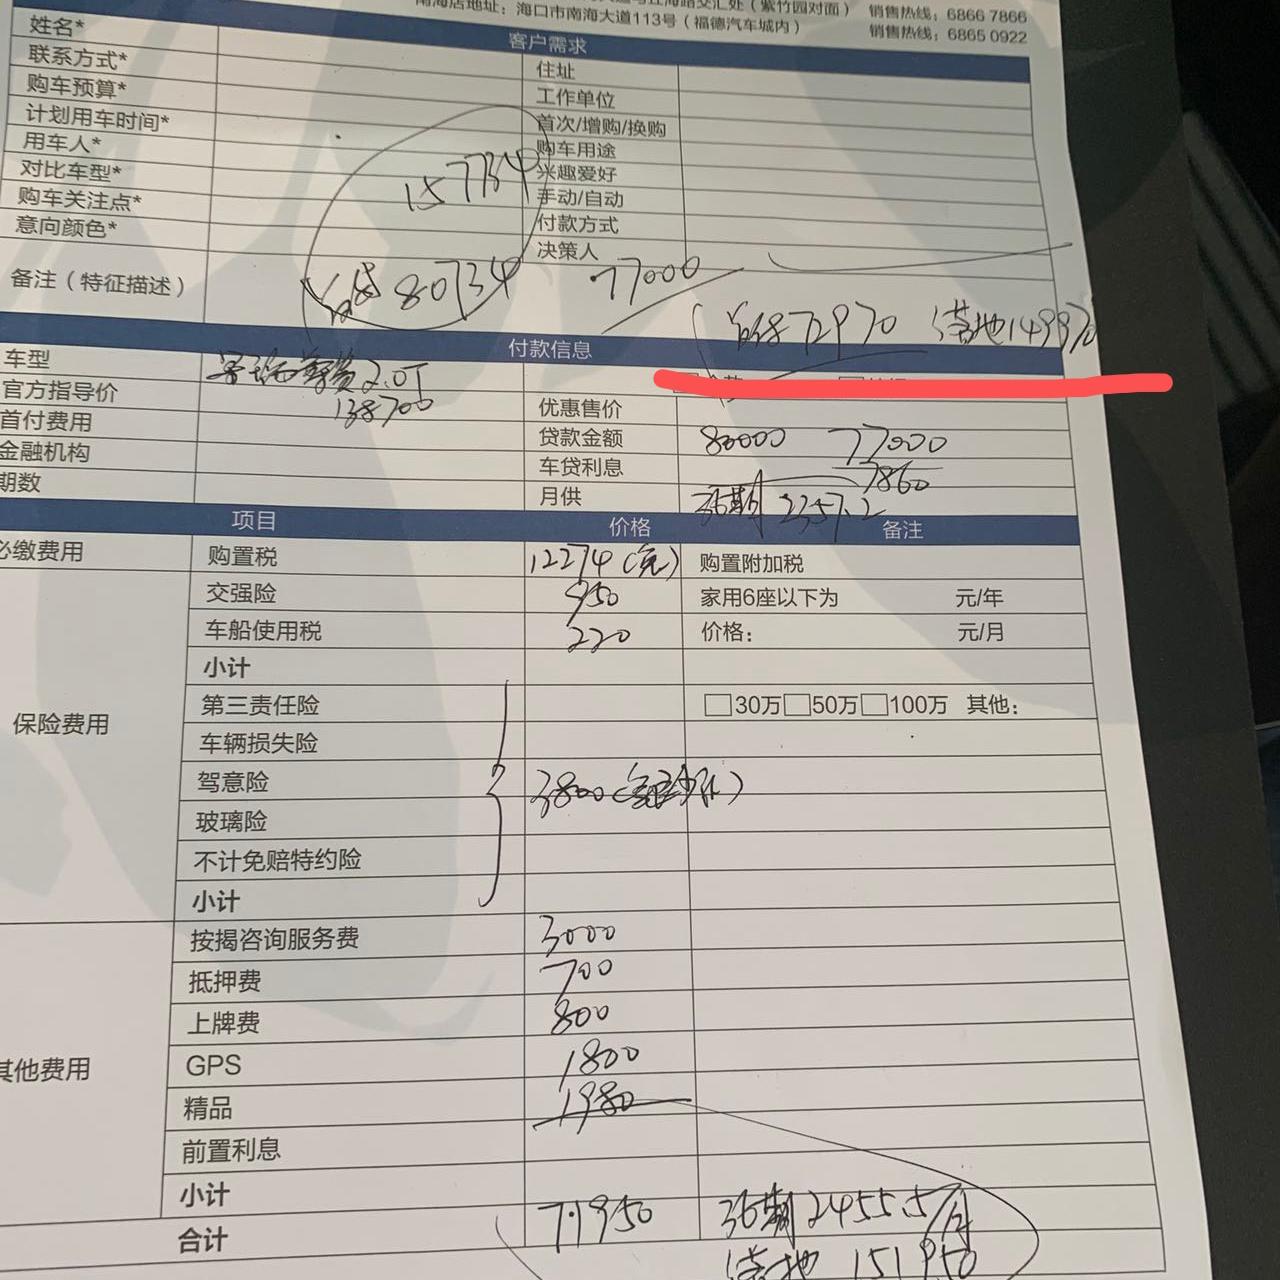 交汇处（紫竹园对面） 销售热线：6866 7866
南海店地址：海口市南海大道113号（福德汽车城内） 销售热线：6865 0922
客户需求
姓名*
联系方式* 住址
购车预算* 工作单位
计划用车时间* 首次/增购/换购
用车人* 购车用途
对比车型* 157734 兴趣爱好
购车关注点* 手动/自动
意向颜色* 付款方式
决策人
备注（特征描述） 80734 77000
首付72970 落地149970
付款信息
车型 2.0T
官方指导价 138700 优惠售价
首付费用 贷款金额 80000 77000
金融机构 车贷利息 7860
期数 月供 36期 2357.2
项目 价格 备注
必缴费用 购置税 12274（免） 购置附加税
交强险 950 家用6座以下为 元/年
车船使用税 220 价格： 元/月
小计
保险费用 第三责任险 30万 50万 100万 其他：
车辆损失险
驾意险 3800
玻璃险
不计免赔特约险
小计
按揭咨询服务费 3000
抵押费 700
上牌费 800
其他费用 GPS 1800
精品 1980
前置利息
小计
合计 71950 36期 2455.5/月
落地 151950